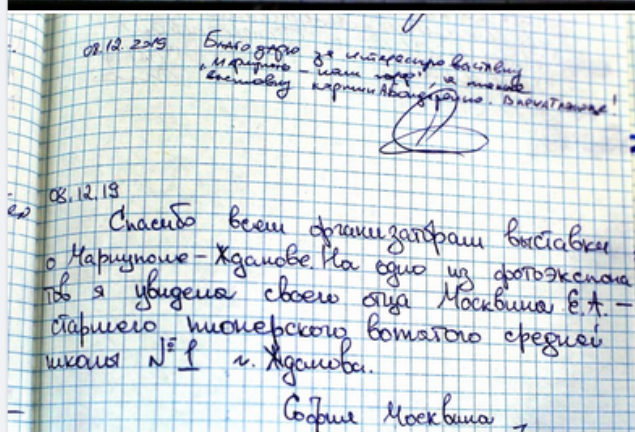 08.12.2019 Благодарю за интересную выставку
„Мариуполь – наш город", а также
выставку картин. Впечатляюще!
08.12.19
Спасибо всем организаторам выставки
о Мариуполе – Жданове. На одно из фотоэкспона
тов я увидела своего отца Москвина Е.А. –
старшего пионерского вожатого средней
школы №1 г. Жданова.
София Москвина